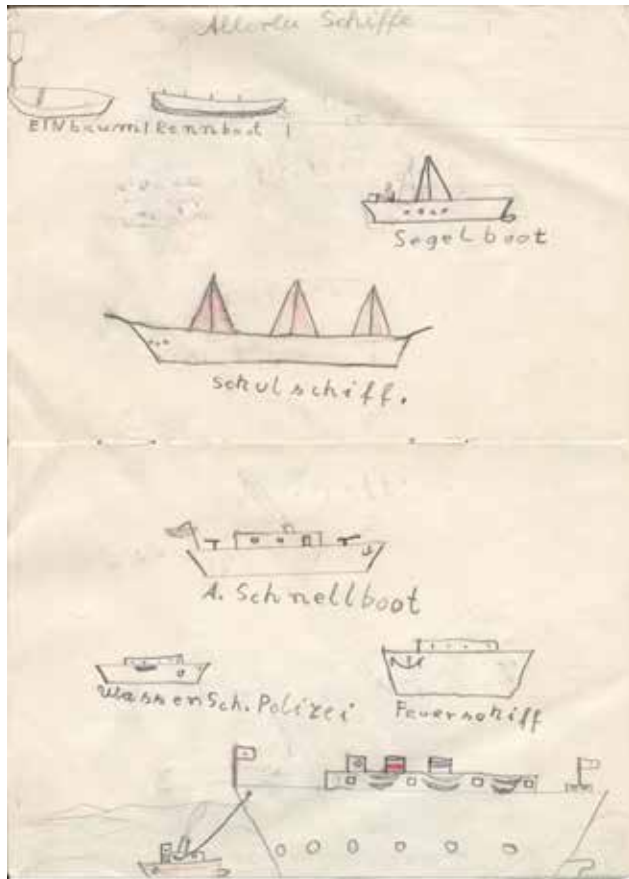 Allerlei Schiffe
EINbaum | Rennboot |
Segelboot
Schulschiff.
A. Schnellboot
WassenSch. Polizei
Feuerschiff